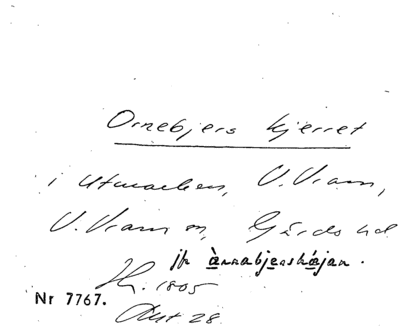 Ornebjers kjerret
i Utmarken, V. Vram,
V. Vram sn, Gärds hd
jfr ànnabjenskájan.
H. 1805
Akt 28
Nr 7767.